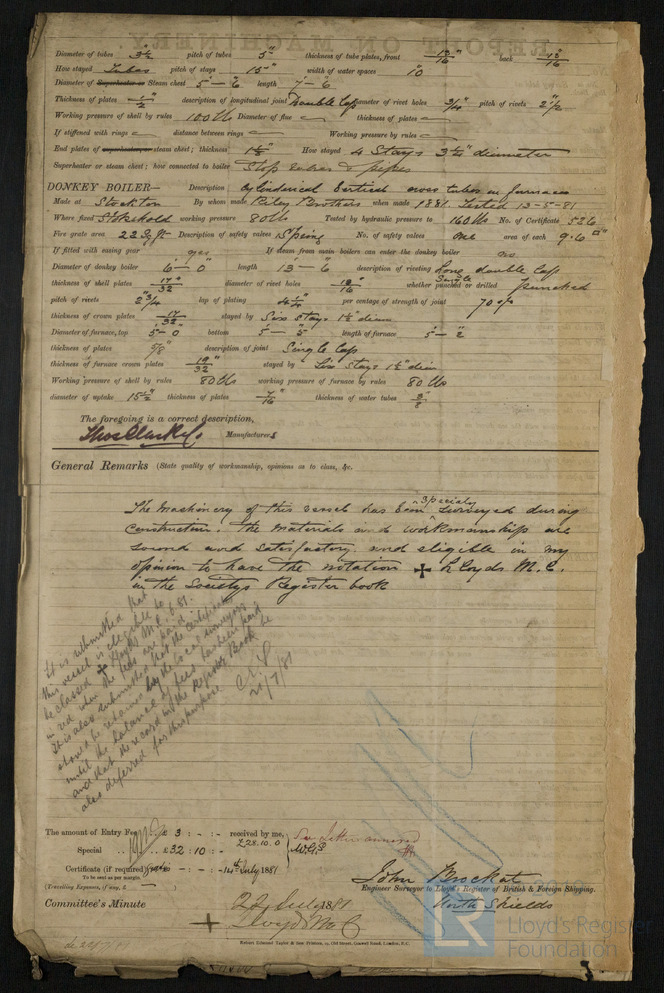 Diameter of tubes 3½" pitch of tubes 5" thickness of tube plates, front 13/16" back 13/16"
How stayed Tubes pitch of stays 15" width of water spaces 10"
Diameter of Superheater or Steam chest 5' - 6" length 7' - 6
Thickness of plates description of longitudinal joint Double Lap diameter of rivet holes 3/4" pitch of rivets 2½"
Working pressure of shell by rules 100 lbs Diameter of flue thickness of plates
If stiffened with rings distance between rings Working pressure by rules
End plates of superheater, or steam chest; thickness How stayed 4 Stays diameter
Superheater or steam chest; how connected to boiler Stop valves & pipes
DONKEY BOILER— Description Cylindrical Vertical cross tubes in furnace
Made at Stockton By whom made Riley Brothers when made 1881. Tested 13-5-81
Where fixed Stokehold working pressure 80 lbs Tested by hydraulic pressure to 160 lbs No. of Certificate 586
Fire grate area 22 Sq ft Description of safety valves Spring No. of safety valves one area of each 9.6 □"
If fitted with easing gear yes If steam from main boilers can enter the donkey boiler no
Diameter of donkey boiler 6' - 0" length 13 - 6 description of riveting Long. double Lap Single
thickness of shell plates 17/32" diameter of rivet holes 13/16" whether punched or drilled punched
pitch of rivets 2¾ lap of plating 4¼" per centage of strength of joint 70%
thickness of crown plates 17/32" stayed by Six stays 1½" diam
Diameter of furnace, top 5' - 0 bottom 5' - 5" length of furnace 5' - 2
thickness of plates 5/8" description of joint Single Lap
thickness of furnace crown plates 19/32" stayed by Six stays 1½" diam
Working pressure of shell by rules 80 lbs working pressure of furnace by rules 80 lbs
diameter of uptake 15½" thickness of plates 7/16" thickness of water tubes 3/8"
The foregoing is a correct description,
Thos Clark & Co. Manufacturers
General Remarks (State quality of workmanship, opinions as to class, &c.
The Machinery of this vessel has been ^specially surveyed during
Construction. the materials and workmanship are
sound and satisfactory. and eligible in my
opinion to have the notation ✠ Lloyds M.C.
in the Societys Register book
It is submitted that
this vessel is eligible to
be classed ✠ Lloyds M.C. 6.81.
in red when the fees are paid
It is also submitted that the certificate
should be retained by the local surveyors
until the balance of fees has been paid
and that the record in the Register Book be
also deferred for this purpose
21/7/81
The amount of Entry Fee £ 3 : - : - received by me,
Special £32 : 10 : - £28.10.0
Certificate (if required) gratis - : - : - 14th July 1881
To be sent as per margin.
(Travelling Expenses, if any, £ )
See letter annexed
John Brockat
Engineer Surveyor to Lloyd's Register of British & Foreign Shipping.
North Shields
Committee's Minute 22 July 1881
✠ Lloyds M C
Robert Edmund Taylor & Son Printers, 19, Old Street, Goswell Road, London, E.C.
LR
Lloyd's Register
Foundation